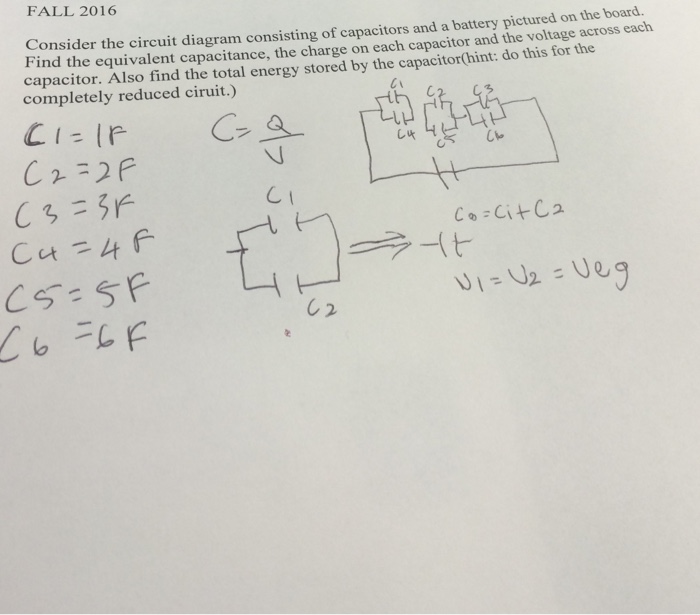 FALL 2016
Consider the circuit diagram consisting of capacitors and a battery pictured on the board.
Find the equivalent capacitance, the charge on each capacitor and the voltage across each
capacitor. Also find the total energy stored by the capacitor(hint: do this for the
completely reduced ciruit.)
C1 = 1F
C2 = 2F
C3 = 3F
C4 = 4F
C5 = 5F
C6 = 6F
C = Q
V
C1
C2
C3
C4
C5
C6
C1
C2
= C1 + C2
V1 = V2 = Veg